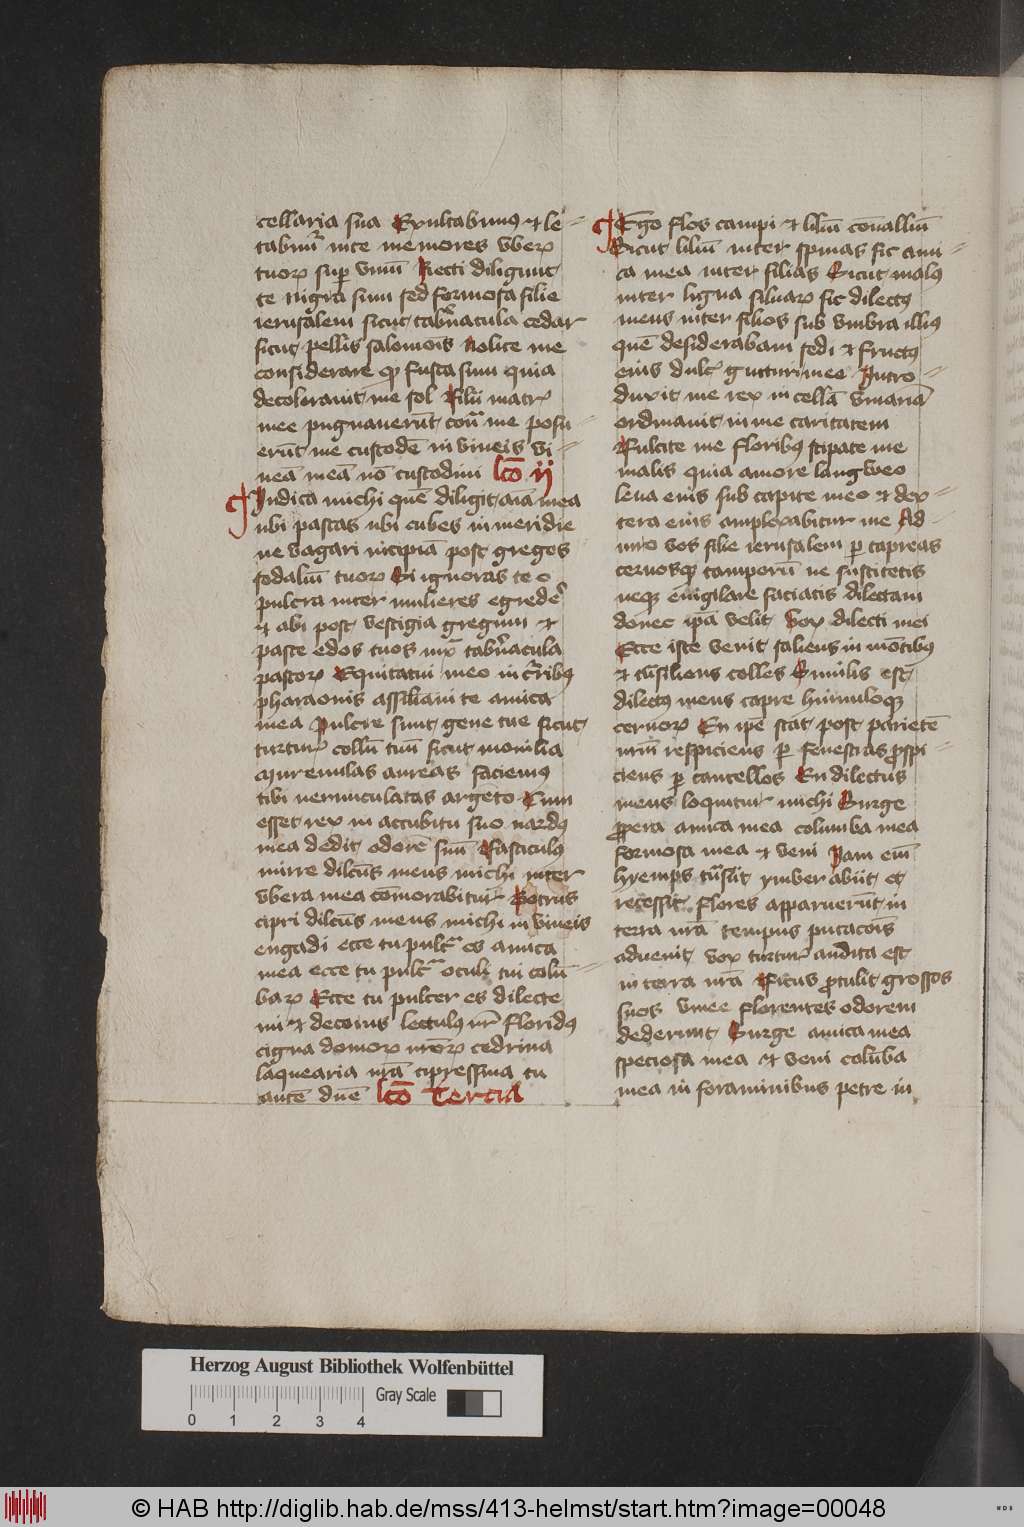 cellaria sua Exultabimꝰ ⁊ le-
tabimᷣ in te memores vberꝝ
tuoꝝ suꝑ vinū Recti diligunt
te nigra sum sed formosa filie
ierusalem sicut tabn̄acula cedar
sicut pellis salomois Nolite me
considerare ꝙ fusca sim quia
decolorauit me sol Filii matrꝭ
mee pugnauerūt cont̃ me posu-
erūt me custodē in vineis vi-
neā meā nō custodiui lcō ij
Indica michi quē diligit aīa mea
ubi pascas ubi cubes in meridie
ne vagari incipiā post greges
sodaliū tuoꝝ Si ignoras te o
pulcra inter mulieres egredeꝰ
⁊ abi post vestigia gregum ⁊
pasce edos tuos iux̄ tabn̄acula
pastoꝝ Equitatui meo in cᷣribꝰ
pharaonis assilaui te amica
mea Pulcre sunt gene tue sicut
turturꝭ collū tuū sicut monilia
Murenulas aureas faciemꝰ
tibi uermiculatas argēto Cum
esset rex in accubitu suo nardꝰ
mea dedit odorē suū Fasciculꝰ
mirre dilc̄us meus michi inter
vbera mea cōmorabitur Botrus
cipri dilc̄us meus michi in vineis
engadi ecce tu pulcᷓ es amica
mea ecce tu pulcᷓ oculꝭ tui colū-
baꝝ Ecce tu pulcer es dilecte
mi ⁊ decorus lectulꝰ nr̄ floridꝰ
tigna domoꝝ nr̄oꝝ cedrina
laquearia nr̄ā cipressina tu
autē dn̄e lcō Tercia
Ego flos campi ⁊ liliū cōualliū
Sicut liliū inter spinas sic ami-
ca mea inter filias Sicut malꝰ
inter ligna siluaꝝ sic dilectꝰ
meus inter filios sub vmbra illiꝰ
quē desiderabam sedi ⁊ fructꝰ
eius dulcꝭ gutturi meo Intro-
duxit me rex in cellā vinariā
ordinauit in me caritatem
Fulcite me floribꝰ stipate me
malis quia amore langweo
leua eius sub capite meo ⁊ dex-
tera eius amplexabitur me Ad-
iuro vos filie ierusalem ꝑ capreas
ceruosqꝫ camporū ne suscitetis
neqꝫ euigilare faciatis dilectam
donec ip̄a velit Vox dilecti mei
Ecce iste venit saliens in mōtibꝰ
⁊ tᷓnsiliens colles Similis est
dilectꝰ meus capre hinnuloqꝫ
ceruoꝝ En ip̄e stat post parietē
nr̄m respiciens ꝑ fenestras ꝓspi-
ciens ꝑ cancellos En dilectus
meus loquitur michi Surge
ꝓpera amica mea columba mea
formosa mea ⁊ veni Iam eī
hyemps tᷓnsiit ymber abiit et
recessit flores apparuerūt in
terra nr̄ā tempus putacōis
aduenit vox turturꝭ audita est
in terra nr̄ā Ficus ꝓtulit grossos
suos vinee florentes odorem
dederunt Surge amica mea
speciosa mea ⁊ veni colūba
mea in foraminibus petre in
Herzog August Bibliothek Wolfenbüttel
0 1 2 3 4 Gray Scale
© HAB http://diglib.hab.de/mss/413-helmst/start.htm?image=00048
WDB